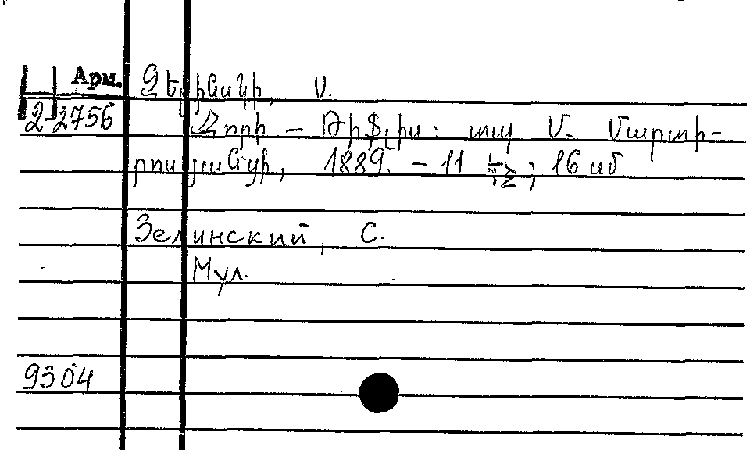 Арм. Զելինսկի, Ս.
2-2756 Ջորի – Թիֆլիս: տպ Մ. Մարտի-
րոսյանցի, 1889. – 11 էջ; 16 սմ
Зелинский, С.
Мул.
9304